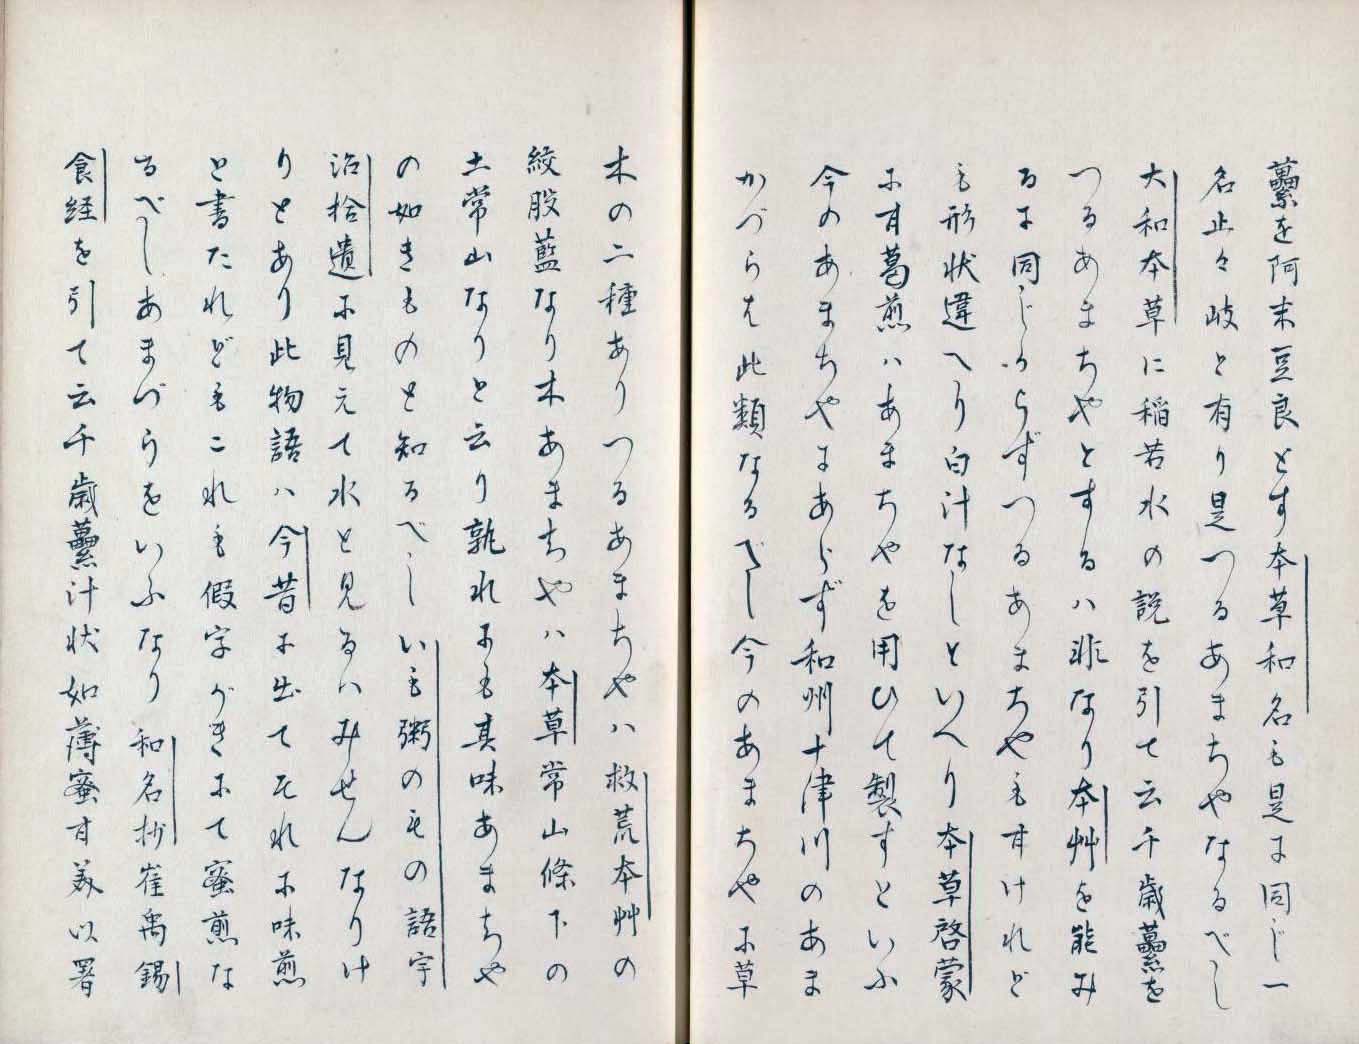 虆を阿末豆良とす本草和名も是に同じ一
名止々岐と有り是つるあまちやなるべし
大和本草に稲若水の説を引て云千歳虆を
つるあまちやとするハ非なり本艸を能み
るに同じからずつるあまちやも甘けれど
も形状違へり白汁なしといへり本草啓蒙
に甘葛煎ハあまちやを用ひて製すといふ
今のあまちやにあらず和州十津川のあま
かづらは此類なるべし今のあまちやに草
木の二種ありつるあまちやハ救荒本艸の
絞股藍なり木あまちやハ本草常山條下の
土常山なりと云り孰れにも其味あまちや
の如きものと知るべしいも粥のもの語宇
治拾遺に見えて水と見るハみせんなりけ
りとあり此物語ハ今昔に出てそれに味煎
と書たれどもこれも假字がきにて蜜煎な
るべしあまづらをいふなり和名抄崔禹錫
食経を引て云千歳虆汁状如薄蜜甘美以署